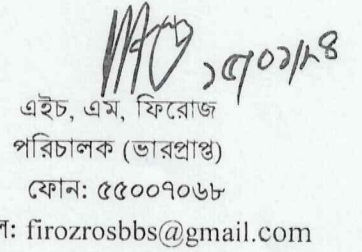 এইচ, এম, ফিরোজ
পরিচালক (ভারপ্রাপ্ত)
ফোন: ৫৫০০৭০৬৮
ল: firozrosbbs@gmail.com